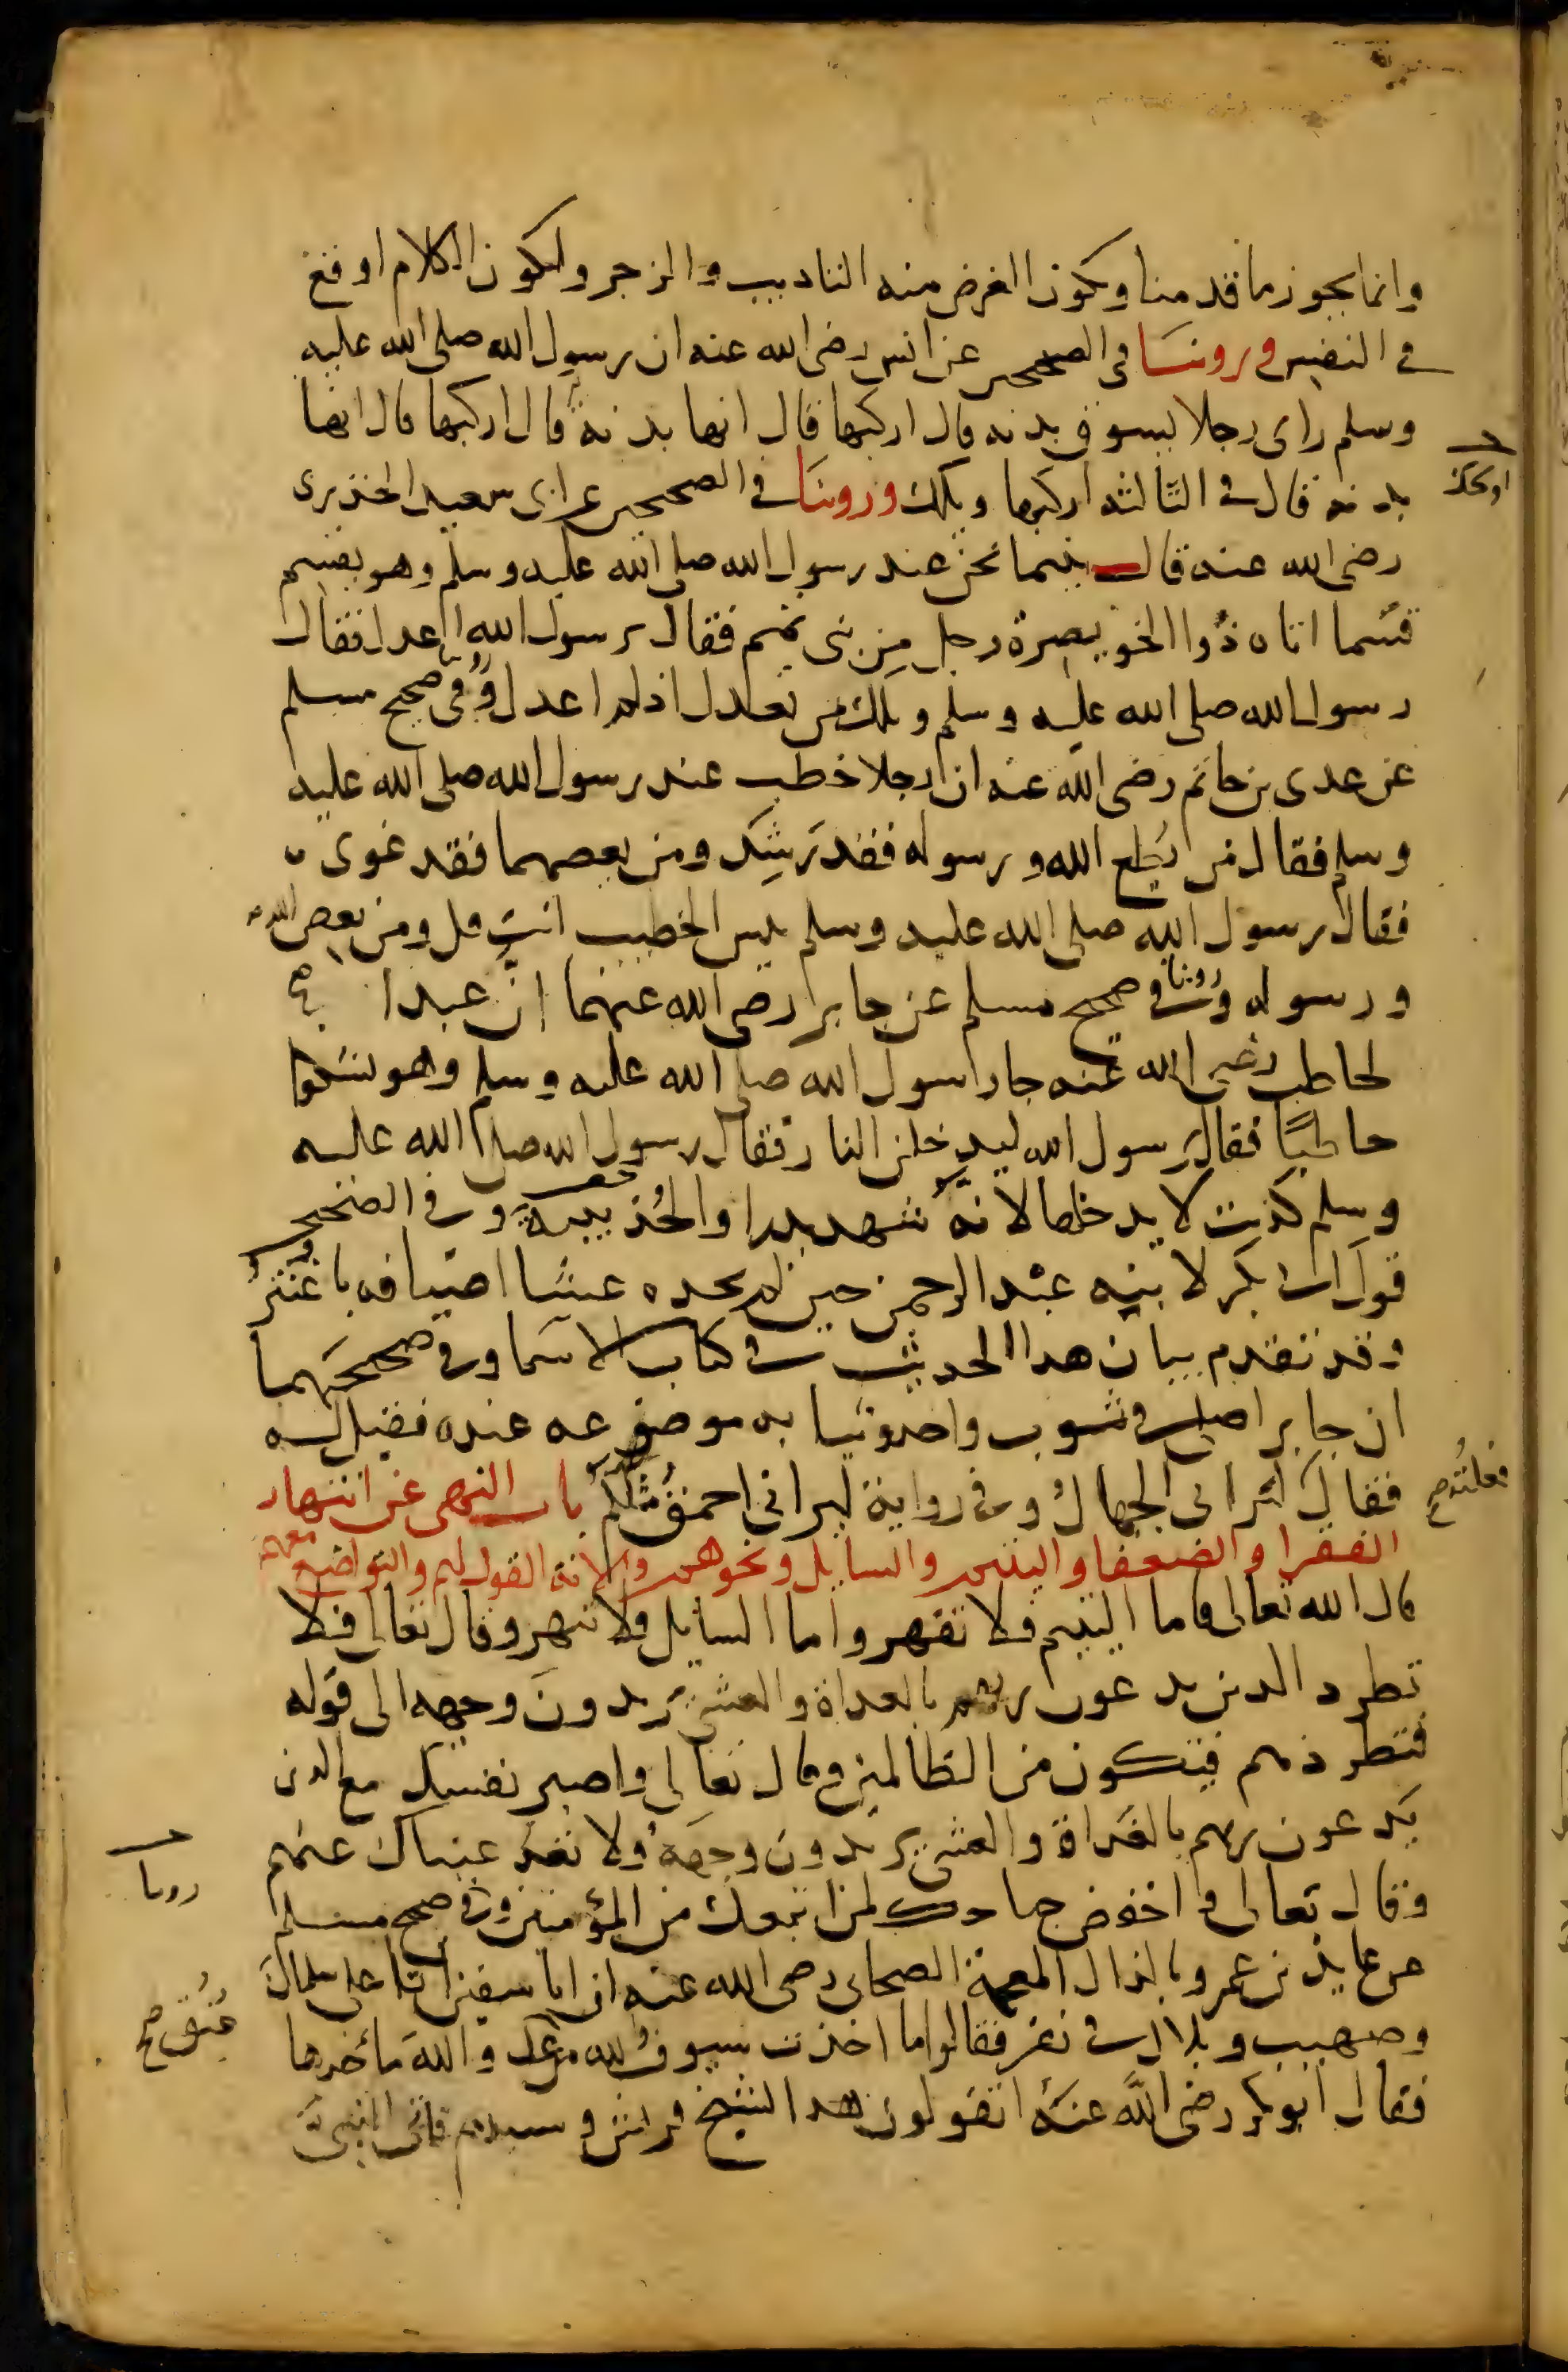 وانما يجوز ما قدمنا ويكون الغرض منه التاديب والزجر وليكون الكلام اوقع
في النفس وروينا في الصحيحين عن انس رضى الله عنه ان رسول الله صلى الله عليه
وسلم راى رجلا يسوق بدنه قال اركبها قال انها بدنة قال اركبها قال انها
بدنه قال في الثالثه اركبها ويلك وروينا في الصحيحين عن ابى سعيد الخدرى
رضى الله عنه قال بينما نحن عند رسول الله صلى الله عليه وسلم وهو يقسم
قسما اتاه ذوا الخويصرة رجل من بنى تميم فقال يرسول الله اعدل فقال
رسول الله صلى الله عليه وسلم ويلك من يعدل اذا لم اعدل وفي صحيح مسلم
عن عدى بن حاتم رضى الله عنه ان رجلا خطب عند رسول الله صلى الله عليه
وسلم فقال من يطع الله ورسوله فقد رشد ومن يعصهما فقد غوى
فقال رسول الله صلى الله عليه وسلم بيس الخطيب انت قل ومن يعص الله
ورسوله وروينا في صحيح مسلم عن جابر رضى الله عنهما ان عبدا
لحاطب رضى الله عنه جا رسول الله صلى الله عليه وسلم وهو يشكوا
حاطبا فقال يرسول الله ليدخلن النار فقال رسول الله صلى الله عليه
وسلم كذبت لا يدخلها لانه شهد بدرا والحديبية وروينا في الصحيحين
قول ابى بكر لابنه عبد الرحمن حين لم يجده عشا اضيافه يا غنثر
وقد تقدم بيان هذا الحديث في كتاب الاسما وفي صحيحهما
ان جابرا صلى في ثوب واحد وثيابه موضوعه عنده فقيل له
فقال ليرانى الجهال وفي رواية ليرانى احمق مثلكم باب النهى عن انتهار
الفقرا والضعفا واليتيم والسايل ونحوهم والانة القول لهم والتواضع معهم
قال الله تعالى فاما اليتيم فلا تقهر واما السايل فلا تنهر وقال تعالى فلا
تطرد الذين يدعون ربهم بالغداة والعشى يريدون وجهه الى قوله
فتطردهم فتكون من الظالمين وقال تعالى واصبر نفسك مع الذين
يدعون ربهم بالغداة والعشى يريدون وجهه ولا تعد عيناك عنهم
وقال تعالى واخفض جناحك لمن اتبعك من المؤمنين وفي صحيح مسلم
عن عايذ بن عمرو بالذال المعجمة الصحابى رضى الله عنه ان ابا سفين اتا على سلمان
وصهيب وبلال في نفر فقالوا ما اخذت سيوف الله من عدو الله ماخذها
فقال ابو بكر رضى الله عنه اتقولون هذا لشيخ قريش وسيدهم فاتى النبى
او يحك
فعلته صح
روينا
عنق صح